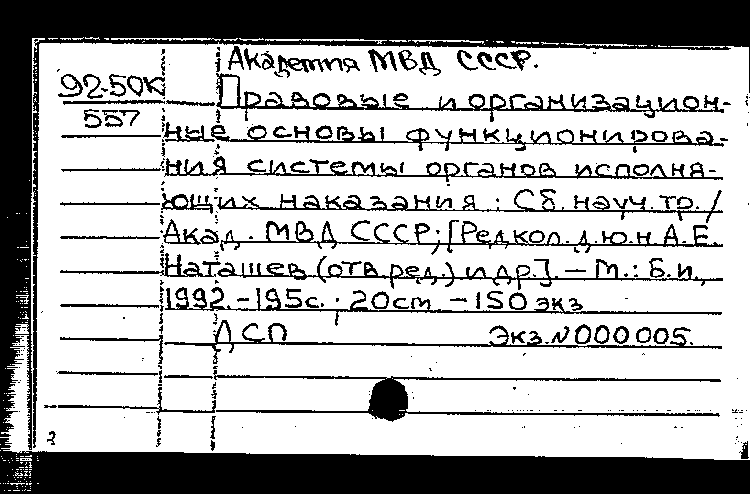 Академия МВД СССР.
92-50К
557
Правовые и организацион-
ные основы функционирова-
ния системы органов исполня-
ющих наказания : Сб. науч. тр. /
Акад. МВД СССР; [Редкол. д.ю.н А.Е.
Наташев (отв. ред.) и др.]. – М. : Б.и.,
1992. – 195с. ; 20см – 150 экз
ДСП Экз. № 000005.